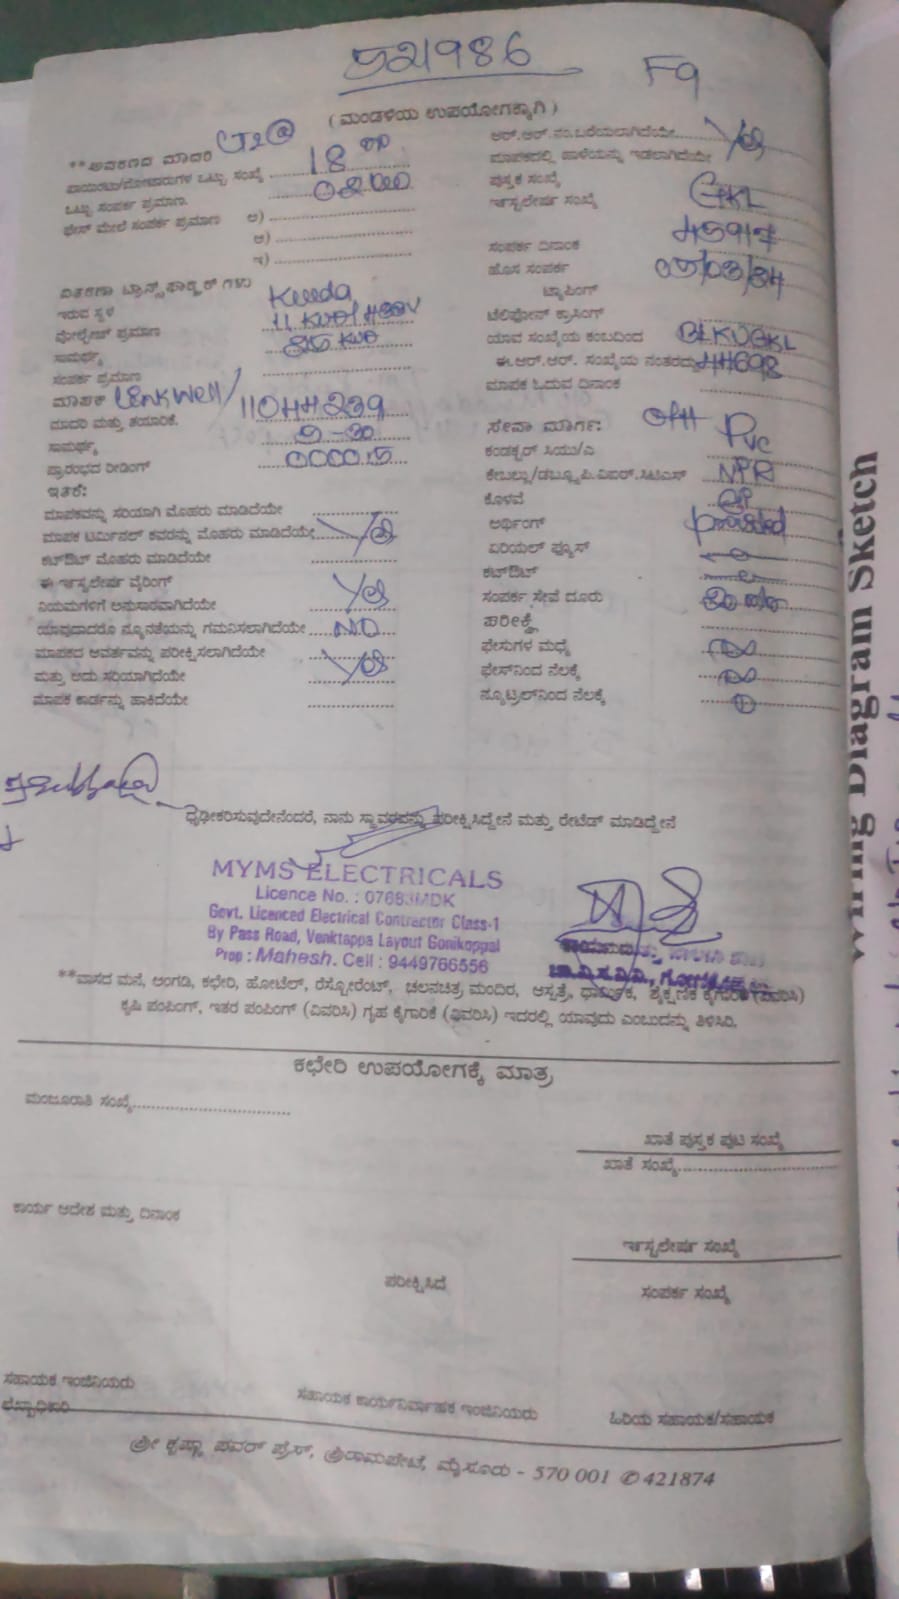 521986
F9
(ಮಂಡಳಿಯ ಉಪಯೋಗಕ್ಕಾಗಿ)
**ಆವರಣದ ಮಾದರಿ
ಪಾಯಿಂಟು/ಮೋಟಾರುಗಳ ಒಟ್ಟು ಸಂಖ್ಯೆ 18
ಒಟ್ಟು ಸಂಪರ್ಕ ಪ್ರಮಾಣ
ಫೇಸ್ ಮೇಲೆ ಸಂಪರ್ಕ ಪ್ರಮಾಣ ಅ)
ಆ)
ಇ)
ವಿತರಣಾ ಟ್ರಾನ್ಸ್‌ಫಾರ್ಮರ್ ಗಳು
ಇರುವ ಸ್ಥಳ
ವೋಲ್ಟೇಜ್ ಪ್ರಮಾಣ
ಸಾಮರ್ಥ್ಯ
ಸಂಪರ್ಕ ಪ್ರಮಾಣ
ಮಾಪಕ
ಮಾದರಿ ಮತ್ತು ತಯಾರಿಕೆ. 11044239
ಸಾಮರ್ಥ್ಯ 5-30
ಪ್ರಾರಂಭದ ರೀಡಿಂಗ್
ಇತರೆ:
ಮಾಪಕವನ್ನು ಸರಿಯಾಗಿ ಮೊಹರು ಮಾಡಿದೆಯೇ
ಮಾಪಕ ಟರ್ಮಿನಲ್ ಕವರನ್ನು ಮೊಹರು ಮಾಡಿದೆಯೇ Yes
ಕಟ್‌ಔಟ್ ಮೊಹರು ಮಾಡಿದೆಯೇ
ಈ ಇನ್ಸ್ಟಲೇಷನ್ ವೈರಿಂಗ್
ನಿಯಮಗಳಿಗೆ ಅನುಸಾರವಾಗಿದೆಯೇ Yes
ಯಾವುದಾದರೂ ನ್ಯೂನತೆಯನ್ನು ಗಮನಿಸಲಾಗಿದೆಯೇ NO
ಮಾಪಕದ ಆವರ್ತವನ್ನು ಪರೀಕ್ಷಿಸಲಾಗಿದೆಯೇ
ಮತ್ತು ಅದು ಸರಿಯಾಗಿದೆಯೇ Yes
ಮಾಪಕ ಕಾರ್ಡನ್ನು ಹಾಕಿದೆಯೇ
ಆರ್.ಆರ್.ನಂ.ಬರೆಯಲಾಗಿದೆಯೇ Yes
ಮಾಪಕದಲ್ಲಿ ಹಾಳೆಯನ್ನು ಇಡಲಾಗಿದೆಯೇ
ಪುಸ್ತಕ ಸಂಖ್ಯೆ
ಇನ್ಸ್ಟಲೇಷನ್ ಸಂಖ್ಯೆ GKL
45917
ಸಂಪರ್ಕ ದಿನಾಂಕ
ಹೊಸ ಸಂಪರ್ಕ
ಟ್ಯಾಪಿಂಗ್
ಟೆಲಿಫೋನ್ ಕ್ರಾಸಿಂಗ್
ಯಾವ ಸಂಖ್ಯೆಯ ಕಂಬದಿಂದ
ಈ.ಆರ್.ಆರ್. ಸಂಖ್ಯೆಯ ನಂತರದ್ದು 44698
ಮಾಪಕ ಓದುವ ದಿನಾಂಕ
ಸೇವಾ ಮಾರ್ಗ: OH
ಕಂಡಕ್ಟರ್ ಸಿಯು/ಎ PVC
ಕೇಬಲ್ಲು/ಡಬ್ಲ್ಯೂ.ಪಿ.ವಿಐಆರ್.ಸಿಟಿಎಸ್
ಕೊಳವೆ
ಅರ್ಥಿಂಗ್ provided
ಏರಿಯಲ್ ಫ್ಯೂಸ್
ಕಟ್‌ಔಟ್
ಸಂಪರ್ಕ ಸೇವೆ ದೂರು
ಪರೀಕ್ಷೆ
ಫೇಸುಗಳ ಮಧ್ಯೆ
ಫೇಸ್‌ನಿಂದ ನೆಲಕ್ಕೆ
ನ್ಯೂಟ್ರಲ್‌ನಿಂದ ನೆಲಕ್ಕೆ
ಧೃಢೀಕರಿಸುವುದೇನೆಂದರೆ, ನಾನು ಸ್ಥಾವರವನ್ನು ಪರೀಕ್ಷಿಸಿದ್ದೇನೆ ಮತ್ತು ರೇಟೆಡ್ ಮಾಡಿದ್ದೇನೆ
MYMS ELECTRICALS
Licence No. : 07683MDK
Govt. Licenced Electrical Contractor Class-1
By Pass Road, Venktappa Layout Gonikoppal
Prop : Mahesh. Cell : 9449766556
**ವಾಸದ ಮನೆ, ಅಂಗಡಿ, ಕಛೇರಿ, ಹೋಟೆಲ್, ರೆಸ್ಟೋರೆಂಟ್, ಚಲನಚಿತ್ರ ಮಂದಿರ, ಆಸ್ಪತ್ರೆ, ಧಾರ್ಮಿಕ, ಶೈಕ್ಷಣಿಕ ಕೈಗಾರಿಕೆ (ವಿವರಿಸಿ)
ಕೃಷಿ ಪಂಪಿಂಗ್, ಇತರ ಪಂಪಿಂಗ್ (ವಿವರಿಸಿ) ಗೃಹ ಕೈಗಾರಿಕೆ (ವಿವರಿಸಿ) ಇದರಲ್ಲಿ ಯಾವುದು ಎಂಬುದನ್ನು ತಿಳಿಸಿರಿ.
ಕಛೇರಿ ಉಪಯೋಗಕ್ಕೆ ಮಾತ್ರ
ಮಂಜೂರಾತಿ ಸಂಖ್ಯೆ
ಖಾತೆ ಪುಸ್ತಕ ಪುಟ ಸಂಖ್ಯೆ
ಖಾತೆ ಸಂಖ್ಯೆ
ಕಾರ್ಯ ಆದೇಶ ಮತ್ತು ದಿನಾಂಕ
ಇನ್ಸ್ಟಲೇಷನ್ ಸಂಖ್ಯೆ
ಪರೀಕ್ಷಿಸಿದೆ
ಸಂಪರ್ಕ ಸಂಖ್ಯೆ
ಸಹಾಯಕ ಇಂಜಿನಿಯರು
ಸಹಾಯಕ ಕಾರ್ಯನಿರ್ವಾಹಕ ಇಂಜಿನಿಯರು
ಹಿರಿಯ ಸಹಾಯಕ/ಸಹಾಯಕ
ಶ್ರೀ ಕೃಷ್ಣಾ ಪವರ್ ಪ್ರೆಸ್, ಶ್ರೀರಾಮಪೇಟೆ, ಮೈಸೂರು - 570 001 ✆ 421874
Wiring Diagram Sketch